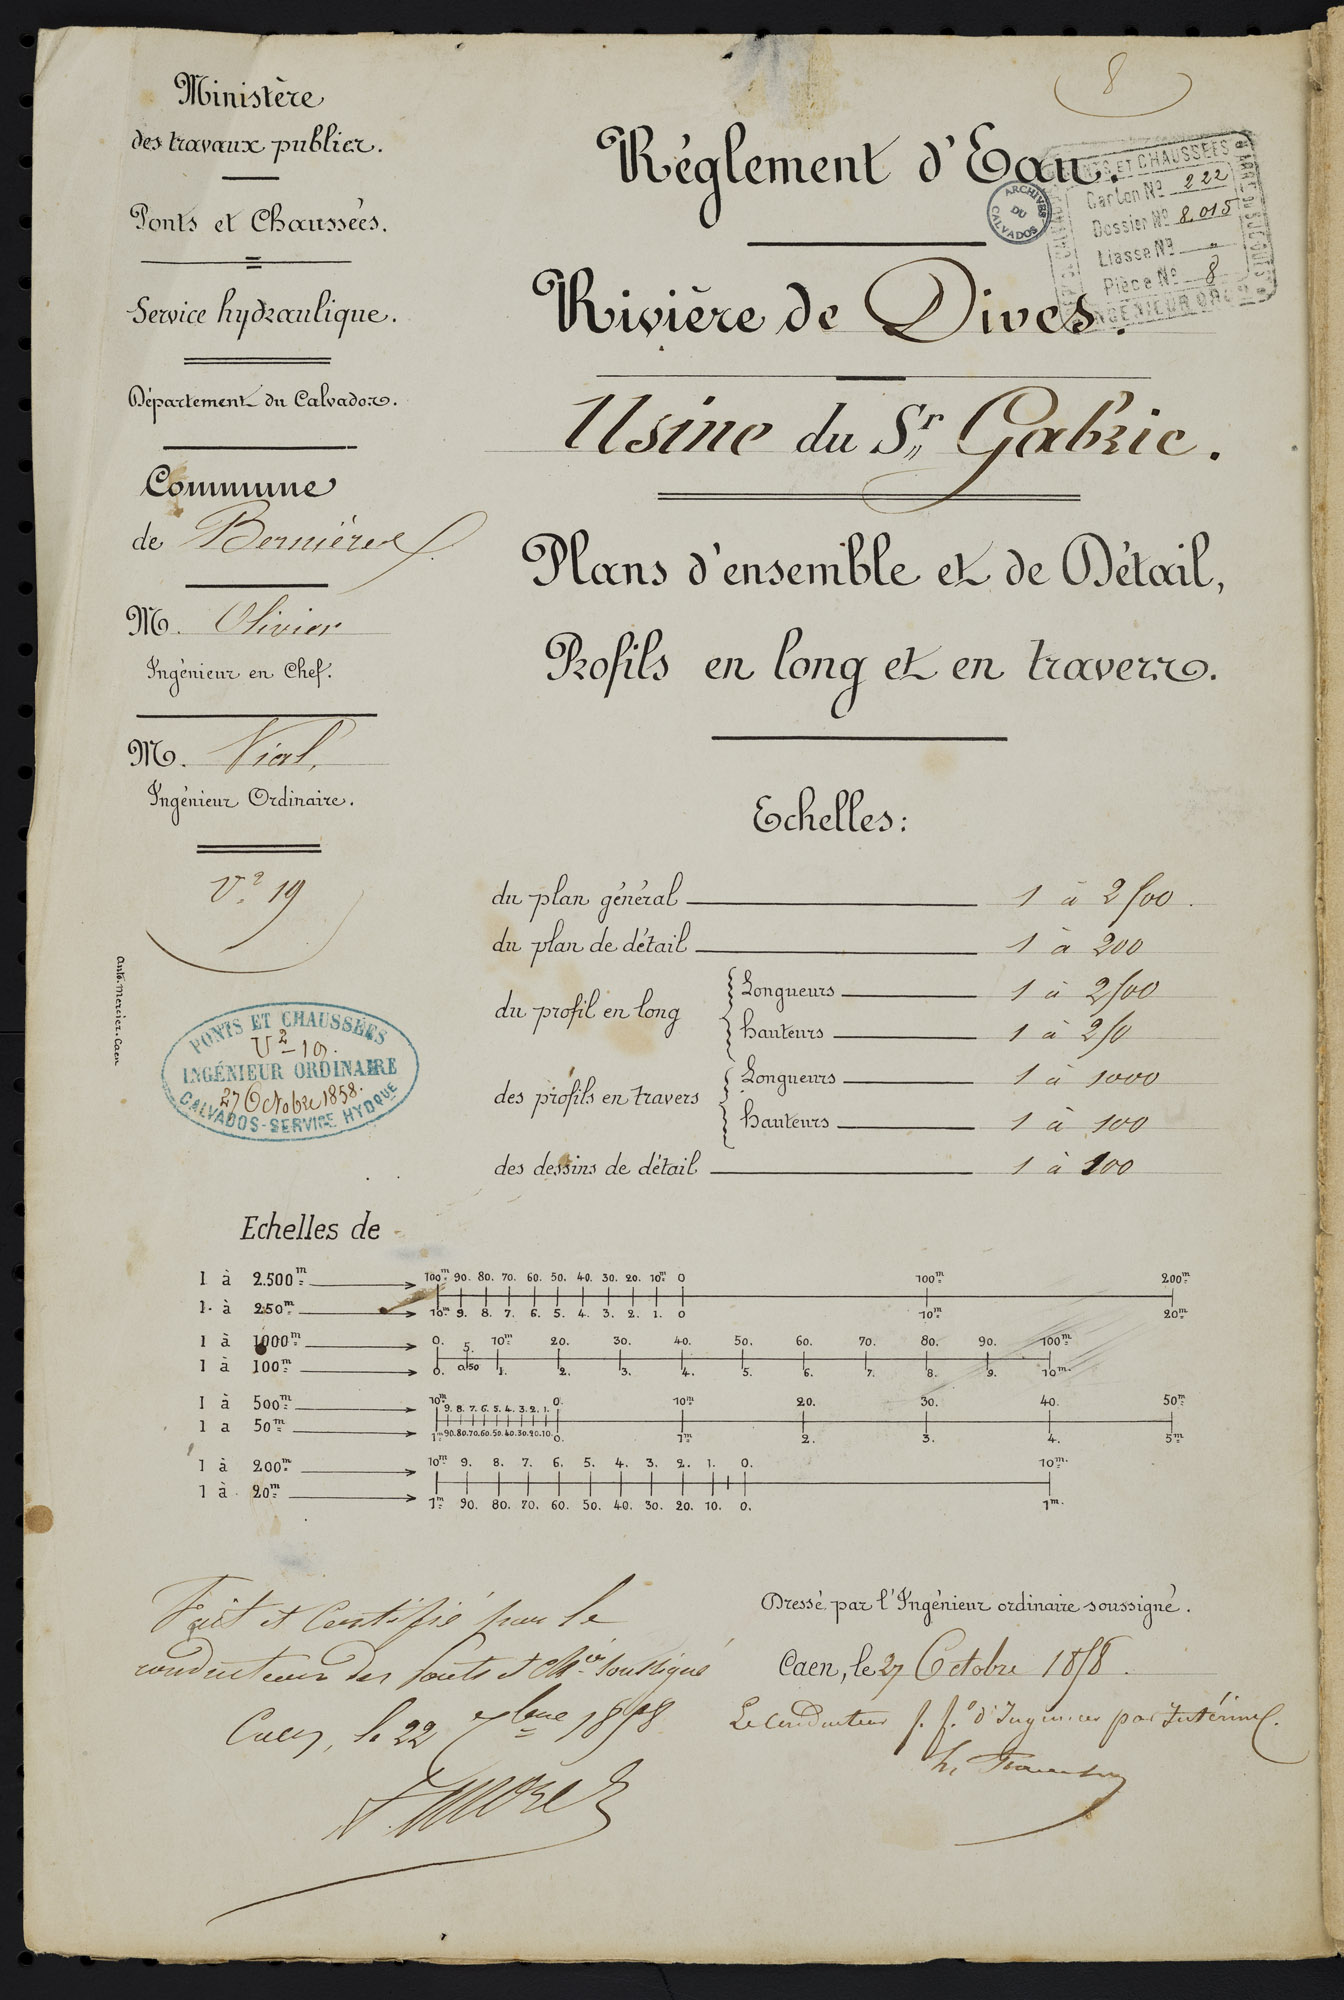 8
Ministère
des travaux publics.
Ponts et Chaussées.
Service hydraulique.
Département du Calvados.
Commune
de Bernières
M. Olivier
Ingénieur en Chef.
M. Vial.
Ingénieur Ordinaire.
V² 19
Auto. Mercier. Caen
PONTS ET CHAUSSÉES
V² 19.
INGÉNIEUR ORDINAIRE
27 Octobre 1858.
CALVADOS-SERVICE HYDQUE
Réglement d'Eau.
ARCHIVES
DU
CALVADOS
PONTS ET CHAUSSÉES
Carton Nº 222
Dossier Nº 8.015
Liasse Nº "
Pièce Nº 8
Rivière de Dives.
Usine du Sr Gabrie.
Plans d'ensemble et de Détail,
Profils en long et en travers.
Echelles:
du plan général 1 à 2500.
du plan de détail 1 à 200
du profil en long { Longueurs 1 à 2500
hauteurs 1 à 250
des profils en travers { Longueurs 1 à 1000
hauteurs 1 à 100
des dessins de détail 1 à 100
Echelles de
1 à 2.500m 100m 90. 80. 70. 60. 50. 40. 30. 20. 10m 0 100m 200m
1. à 250m 10m 9. 8. 7. 6. 5. 4. 3. 2. 1. 0 10m 20m
1 à 1000m 0. 5. 10m 20. 30. 40. 50. 60. 70. 80. 90. 100m
1 à 100m 0. 0.50 1. 2. 3. 4. 5. 6. 7. 8. 9. 10m.
1 à 500m 10m 9. 8. 7. 6. 5. 4. 3. 2. 1. 0. 10m 20. 30. 40. 50m
1 a 50m 1m 90. 80. 70. 60. 50. 40. 30. 20. 10. 0. 1m 2. 3. 4. 5m
1 à 200m 10m 9. 8. 7. 6. 5. 4. 3. 2. 1. 0. 10m.
1 à 20m 1m 90. 80. 70. 60. 50. 40. 30. 20. 10. 0. 1m.
Fait et Certifié par le
conducteur des Ponts et Chées soussigné
Caen, le 22 7bre 1858
Dressé par l'Ingénieur ordinaire soussigné.
Caen, le 27 Octobre 1858.
Le Conducteur f. fº d'Ingénieur par Intérim.